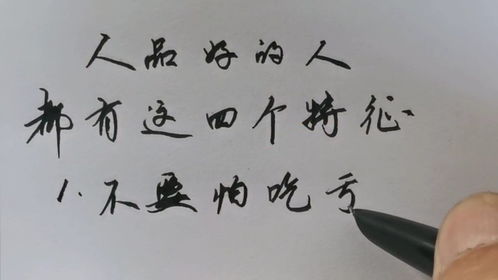 人品好的人
都有这四个特征
1.不要怕吃亏